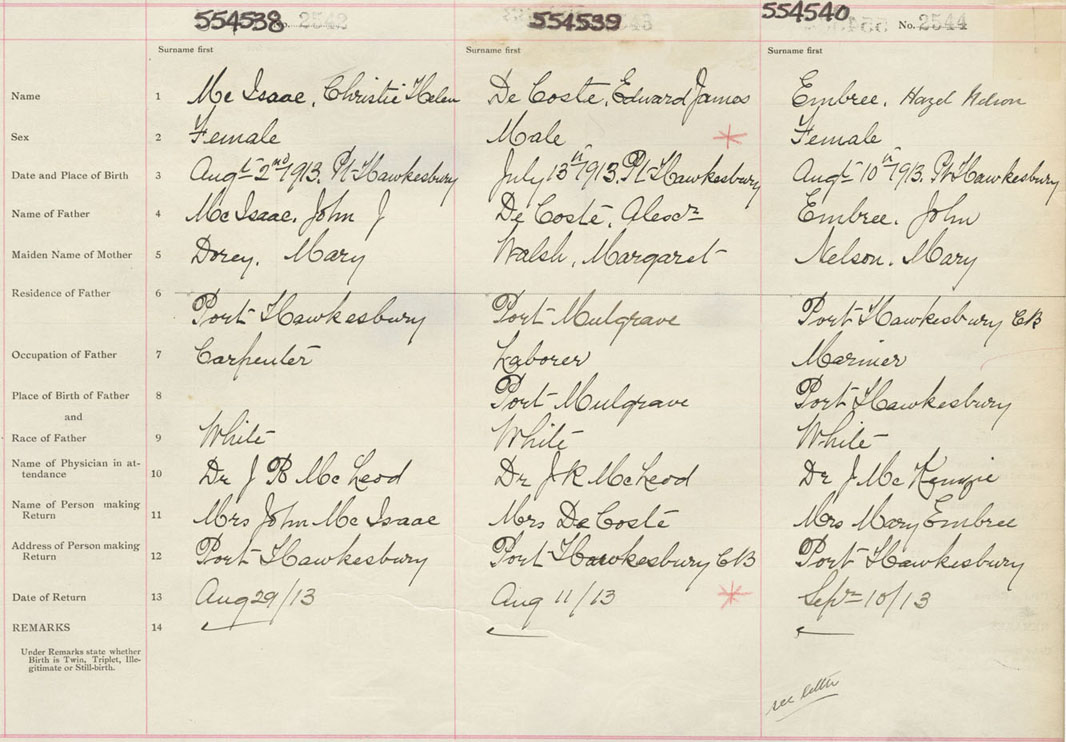 554538 No. 2542 554539 43 554540 No. 2544
Surname first Surname first Surname first
Name 1 Mc Isaac, Christie Helen De Coste, Edward James Embree, Hazel Nelson
Sex 2 Female Male Female
Date and Place of Birth 3 Augt 2nd 1913. Pt Hawkesbury July 13th 1913. Pt Hawkesbury Augt 10th 1913. Pt Hawkesbury
Name of Father 4 Mc Isaac, John J De Coste, Alexr Embree, John
Maiden Name of Mother 5 Dorey, Mary Walsh, Margaret Nelson, Mary
Residence of Father 6 Port Hawkesbury Port Mulgrave Port Hawkesbury CB
Occupation of Father 7 Carpenter Laborer Mariner
Place of Birth of Father 8 Port Mulgrave Port Hawkesbury
and
Race of Father 9 White White White
Name of Physician in at-
tendance 10 Dr J Mc Leod Dr J K Mc Leod Dr J Mc Kenzie
Name of Person making
Return 11 Mrs John Mc Isaac Mrs De Coste Mrs Mary Embree
Address of Person making
Return 12 Port Hawkesbury Port Hawkesbury CB Port Hawkesbury
Date of Return 13 Aug 29/13 Aug 11/13 Sept 10/13
REMARKS 14
Under Remarks state whether
Birth is Twin, Triplet, Ille-
gitimate or Still-birth.
see letter